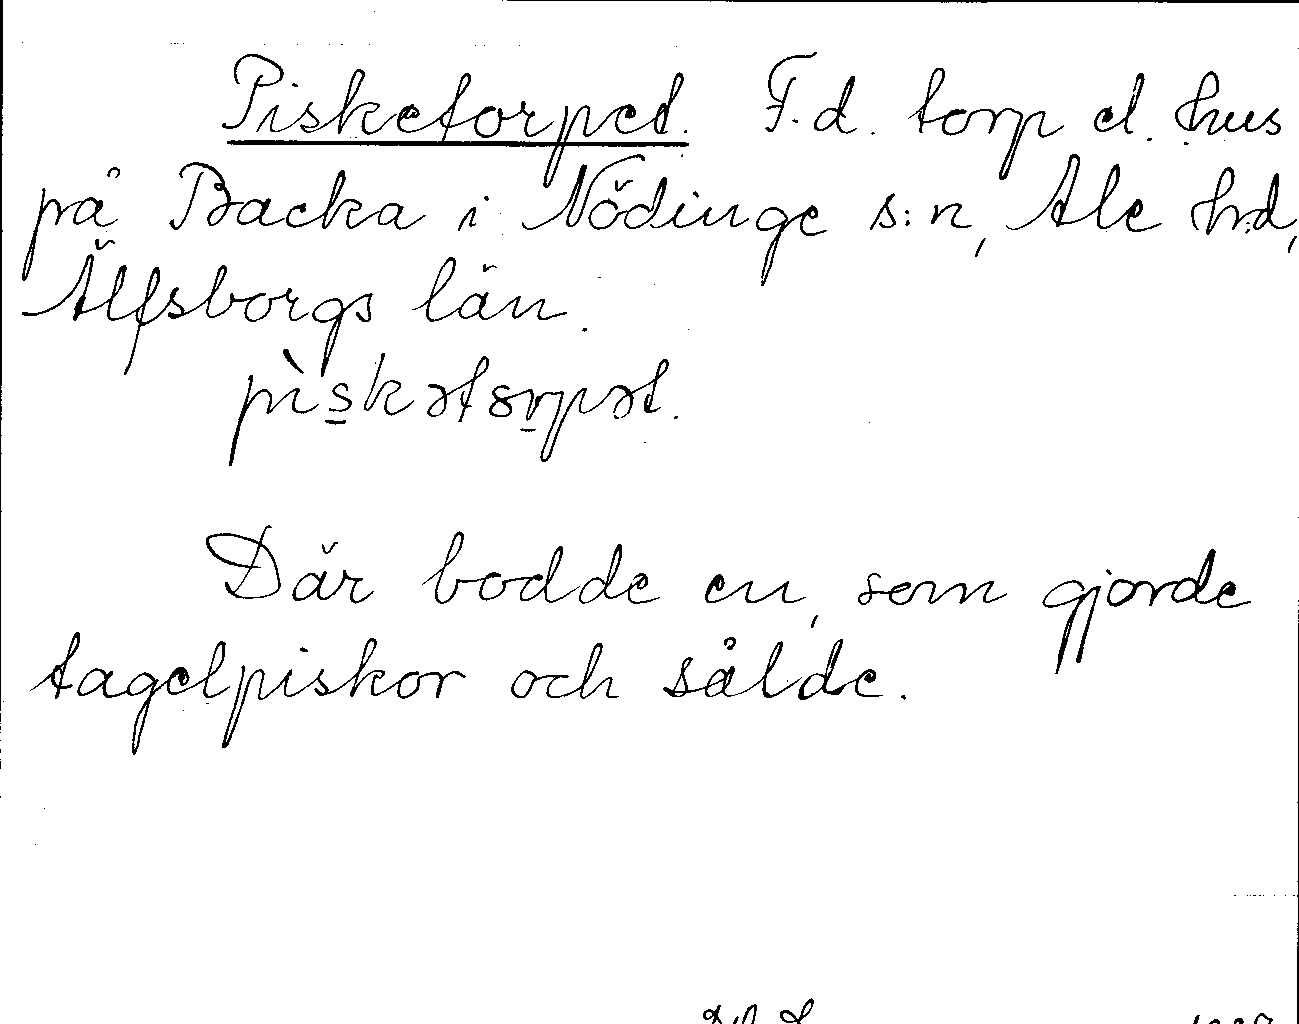 Pisketorpet. F.d. torp el. hus
på Backa i Nödinge s:n, Ale hd,
Älfsborgs län.
pìs̱kətsṟpət.
Där bodde en, som gjorde
tagelpiskor och sålde.